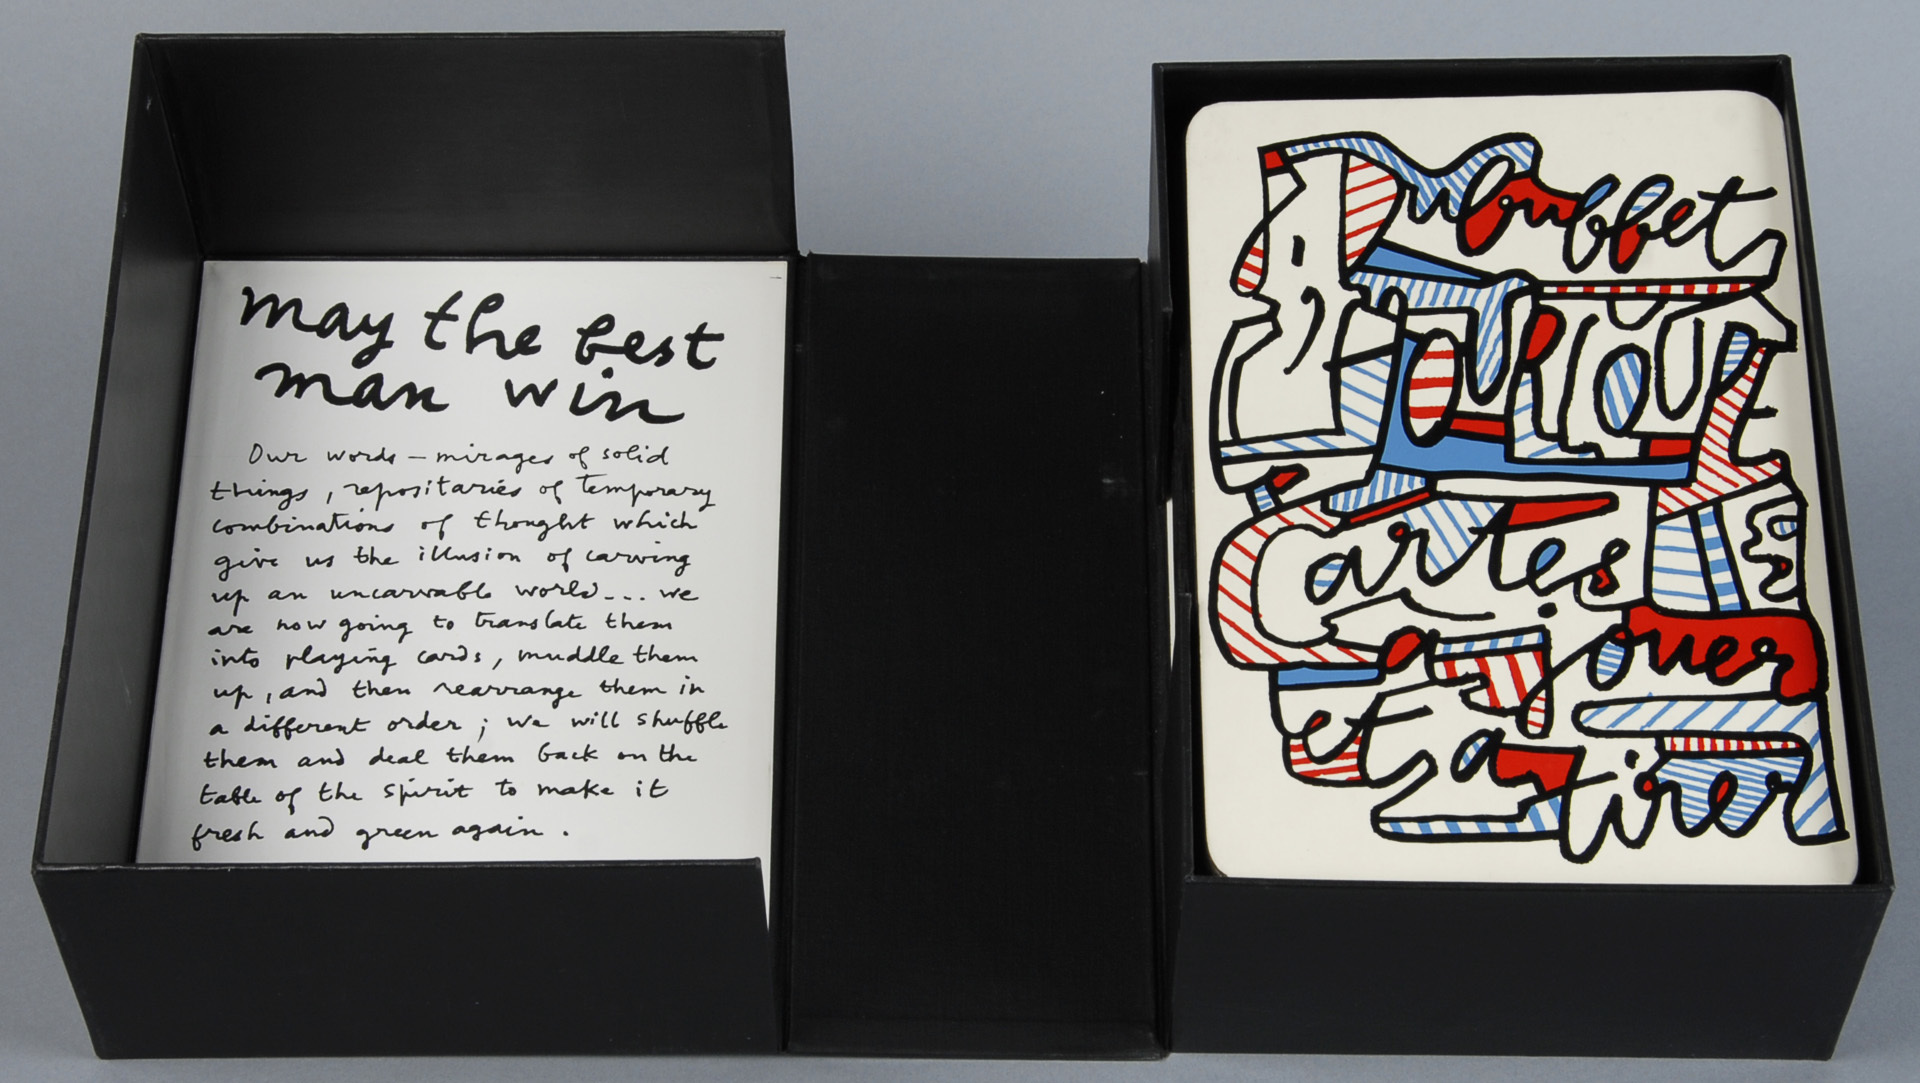 may the best
man win
Our words — mirages of solid
things, repositaries of temporary
combinations of thought which
give us the illusion of carving
up an uncarvable world... we
are now going to translate them
into playing cards, muddle them
up, and then rearrange them in
a different order; we will shuffle
them and deal them back on the
table of the spirit to make it
fresh and green again.
Dubuffet
Cartes
à jouer
et à tirer